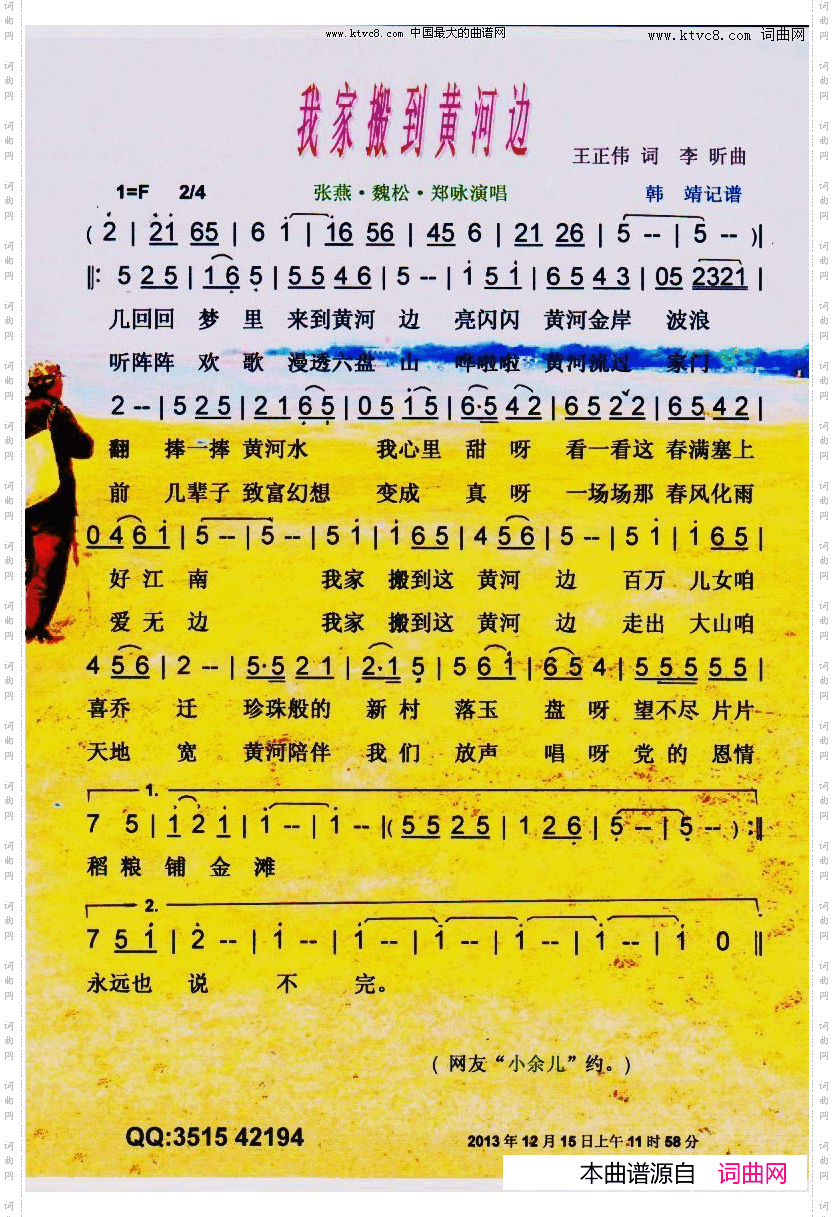 www.ktvc8.com 中国最大的曲谱网
www.ktvc8.com 词曲网
我家搬到黄河边
王正伟 词 李 昕曲
1=F 2/4 张燕·魏松·郑咏演唱 韩 靖记谱
( 2 | 21 65 | 6 1 | 16 56 | 45 6 | 21 26 | 5 -- | 5 -- )||
||: 5 2 5 | 1 6 5 | 5 5 4 6 | 5 -- | 1 5 1 | 6 5 4 3 | 05 2321 |
几回回 梦 里 来到黄河 边 亮闪闪 黄河金岸 波浪
听阵阵 欢 歌 漫透六盘 山 哗啦啦 黄河流过 家门
2 -- | 5 2 5 | 2 1 6 5 | 0 5 1 5 | 6·5 4 2 | 6 5 2 2 | 6 5 4 2 |
翻 捧一捧 黄河水 我心里 甜 呀 看一看这 春满塞上
前 几辈子 致富幻想 变成 真 呀 一场场那 春风化雨
0 4 6 1 | 5 -- | 5 -- | 5 1 | 1 6 5 | 4 5 6 | 5 -- | 5 1 | 1 6 5 |
好 江 南 我家 搬到这 黄河 边 百万 儿女咱
爱 无 边 我家 搬到这 黄河 边 走出 大山咱
4 5 6 | 2 -- | 5·5 2 1 | 2·1 5 | 5 6 1 | 6 5 4 | 5 5 5 5 5 |
喜乔 迁 珍珠般的 新 村 落玉 盘 呀 望不尽 片片
天地 宽 黄河陪伴 我 们 放声 唱 呀 党 的 恩情
1.
7 5 | 1 2 1 | 1 -- | 1 -- |( 5 5 2 5 | 1 2 6 | 5 -- | 5 -- ) :||
稻 粮 铺 金 滩
2.
7 5 1 | 2 -- | 1 -- | 1 -- | 1 -- | 1 -- | 1 -- | 1 0 ||
永远也 说 不 完。
( 网友“小余儿”约。)
QQ:3515 42194
2013 年 12 月 15 日上午 11 时 58 分
本曲谱源自 词曲网